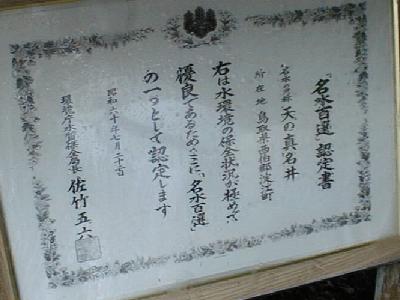 「名水百選」認定書
名水の名称 天の真名井
所在地 鳥取県西伯郡淀江町
右は水環境の保全状況が極めて
優良であるためここに「名水百選」
の一つとして認定します
昭和六十年七月二十二日
環境庁水質保全局長 佐竹五六